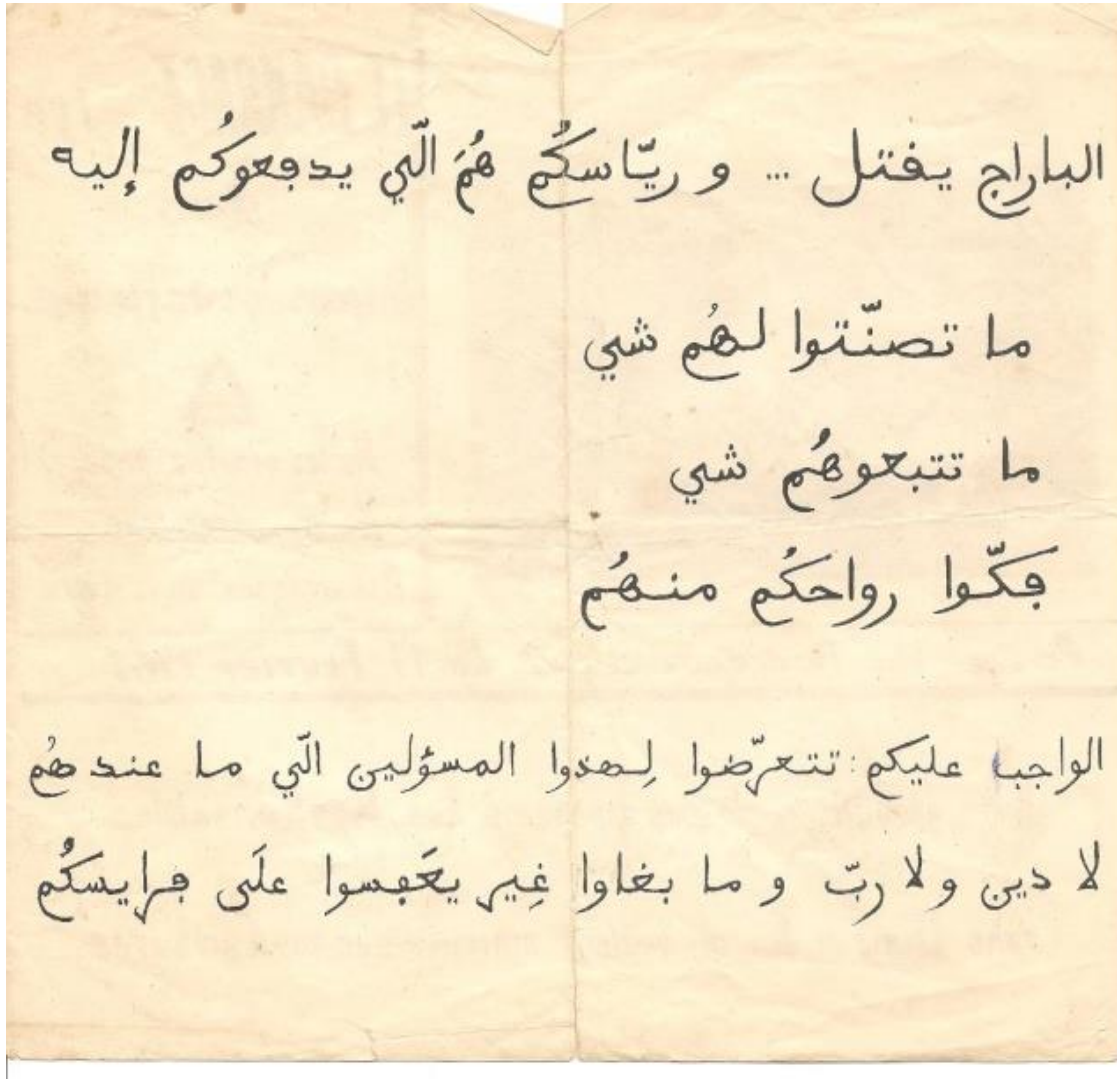 الباراج يقتل ... و ريّاسكُم هُمَ الّي يدفعوكُم إليه
ما تصنّتوا لهُم شي
ما تتبعوهُم شي
فكّوا رواحكُم منهُم
الواجب عليكم: تتعرّضوا لِهذوا المسؤلين الّي ما عندهُم
لا دين ولا ربّ و ما بغاوا غِير يعَفسوا علَى فرايسكُم